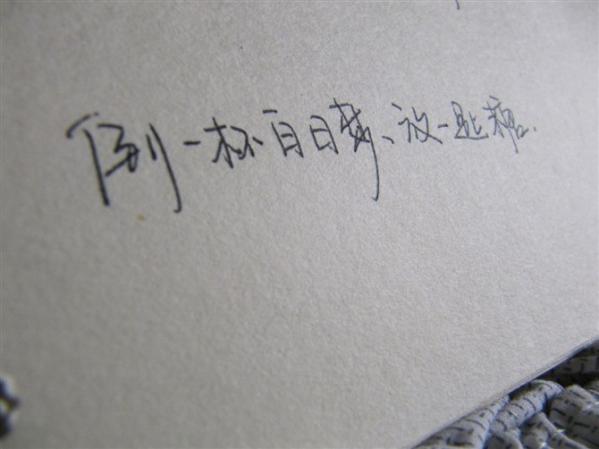 倒一杯白日梦、放一匙糖.